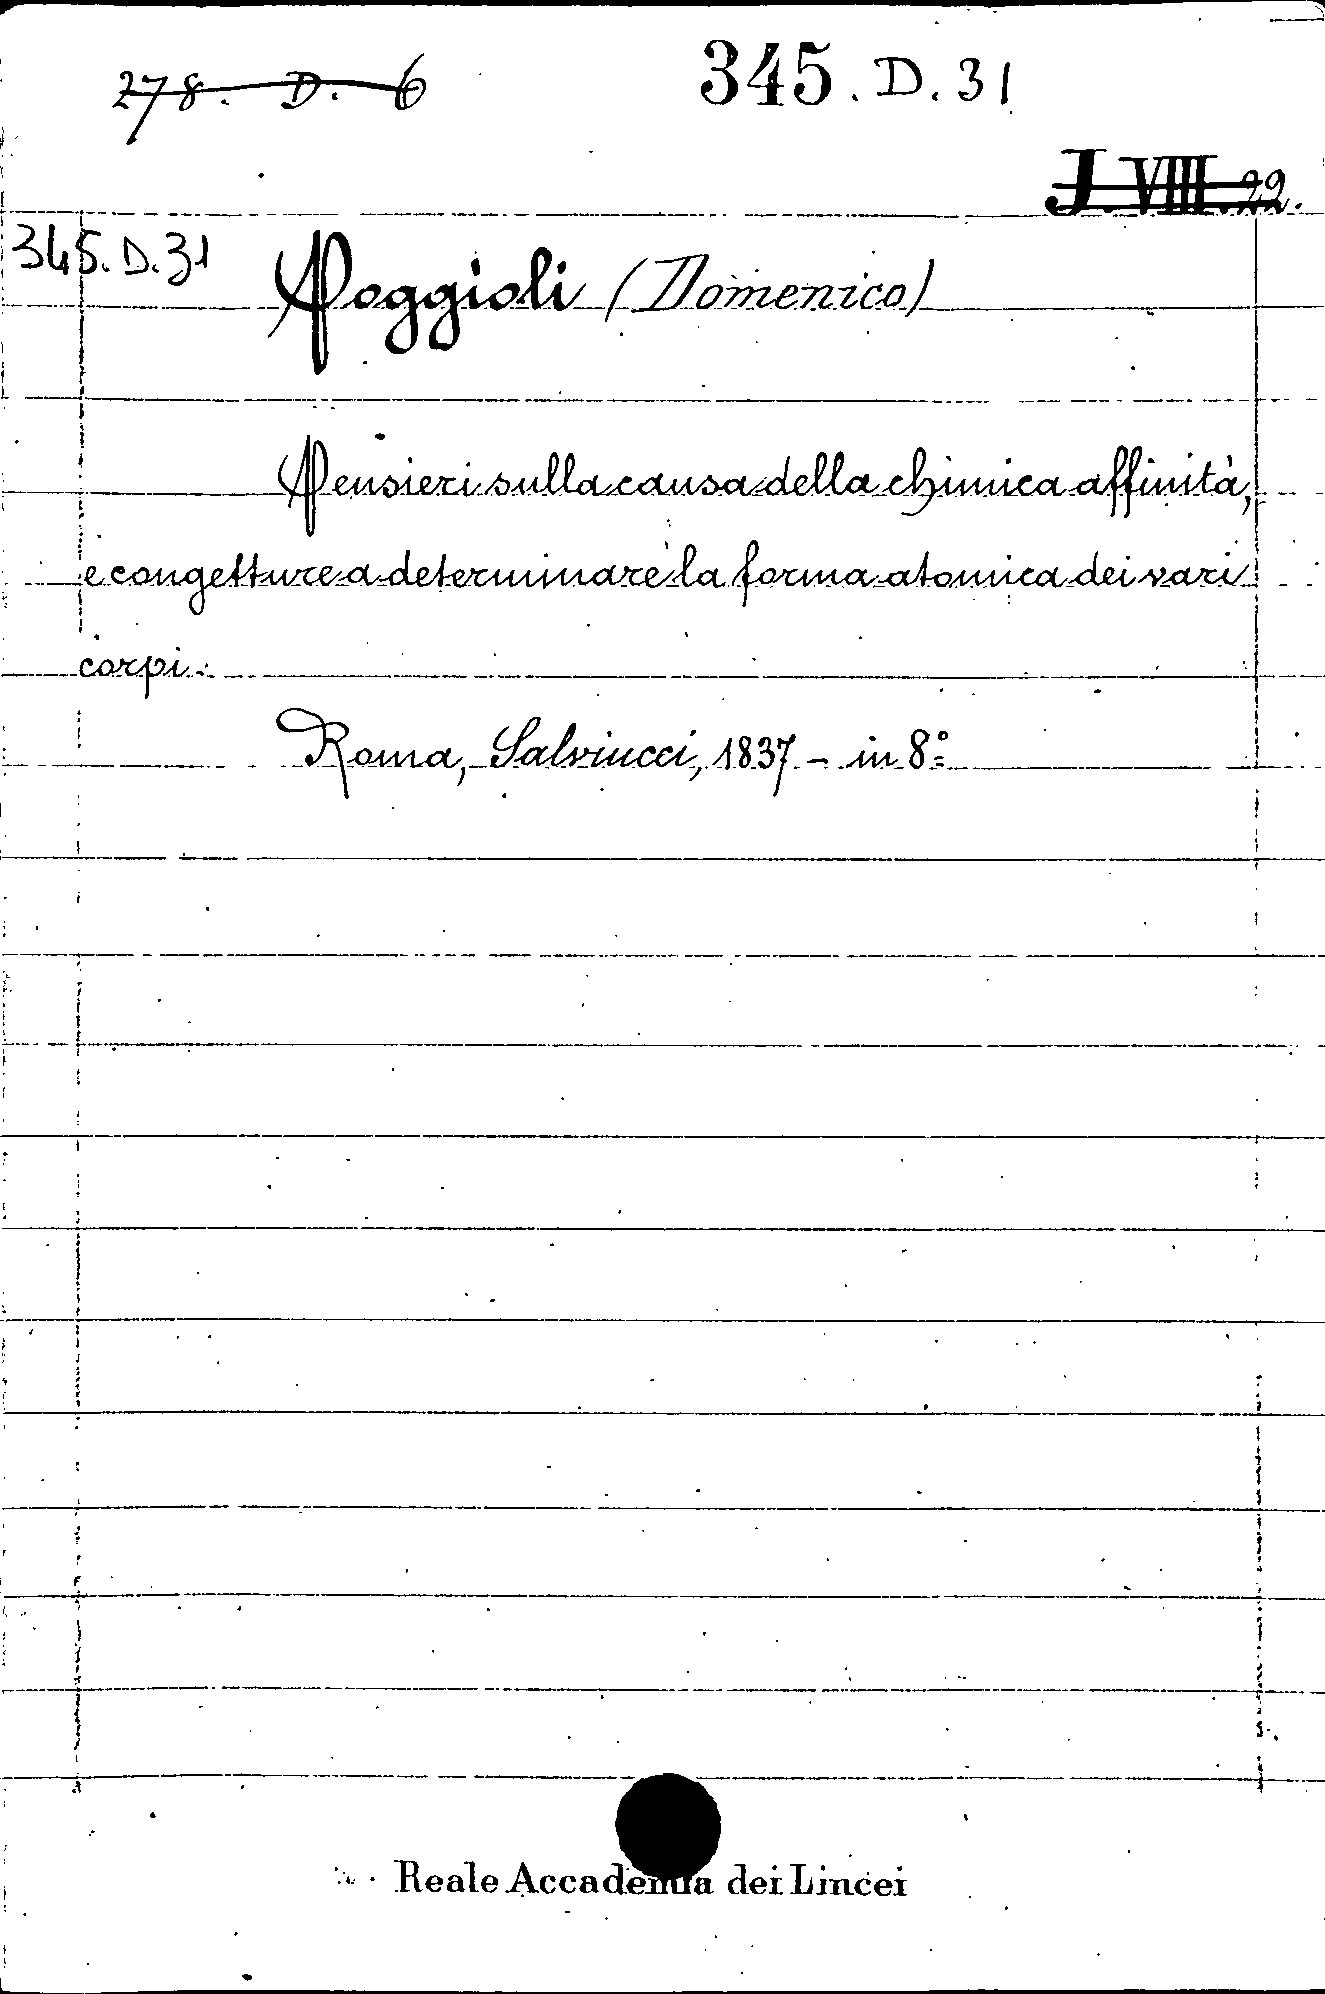 278. D. 6
345. D. 31
J. VIII. 22.
345. D. 31
Poggioli (Domenico)
Pensieri sulla causa della chimica affinità,
e congetture a determinare la forma atomica dei vari
corpi.
Roma, Salviucci, 1837 - in 8º
Reale Accademia dei Lincei